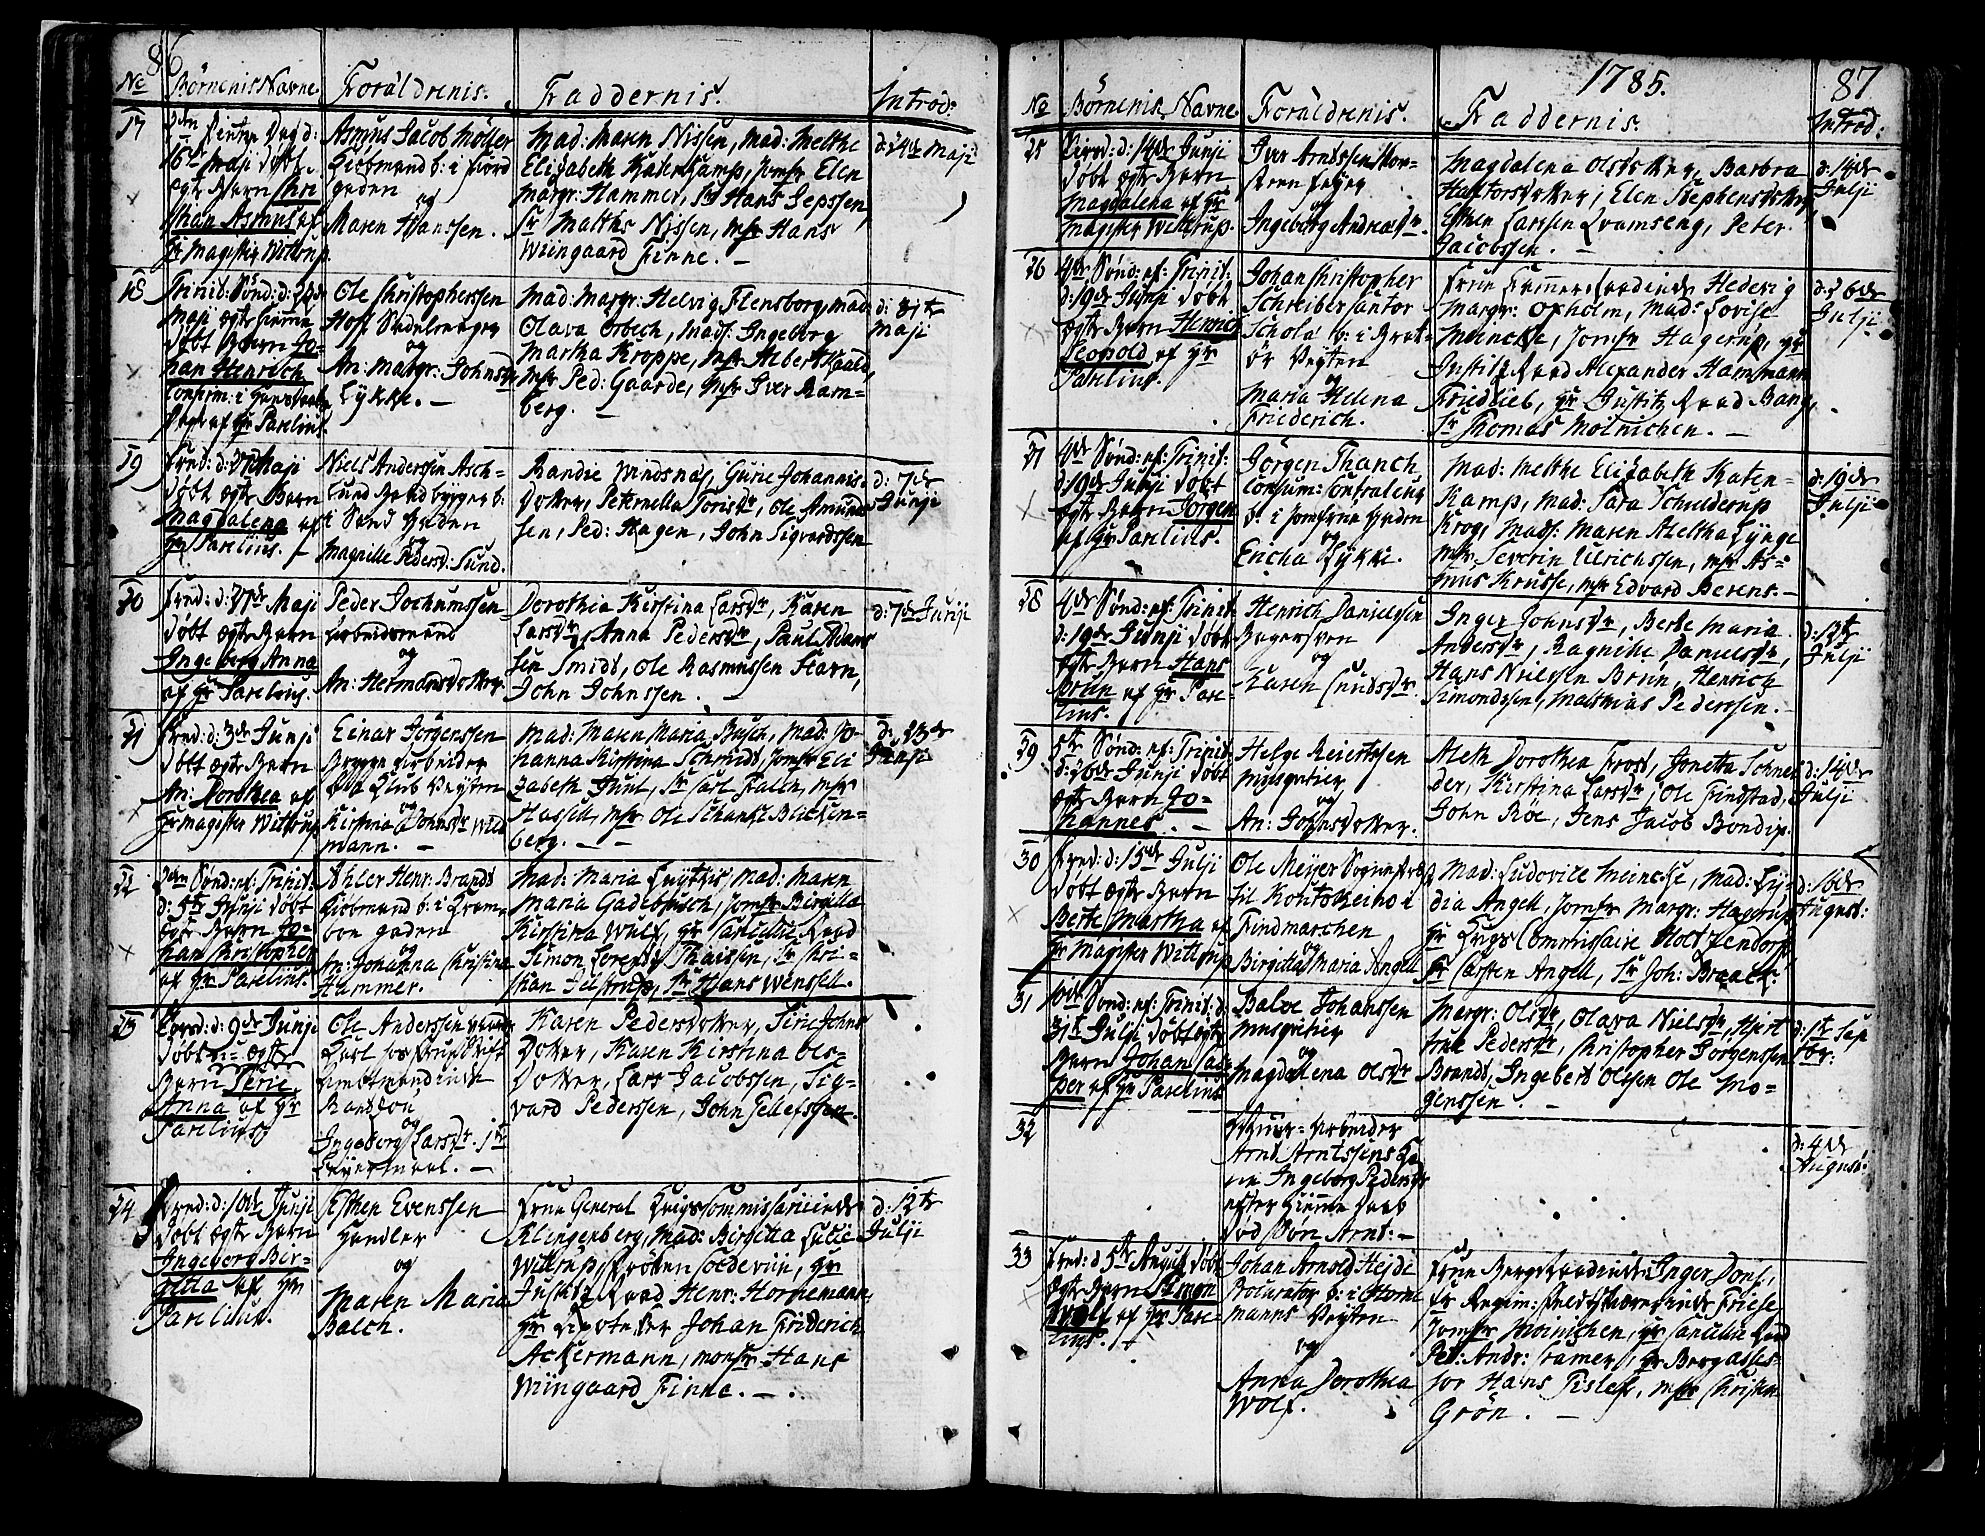 86
No
Börnenis Navne
Foräldrenis.
Faddernis.
Introd:
17
16de Maji döbt
ægte Barn Chri
stian Asmus af
Hr Magister Wittrup
Asmus Jacob Möller
Kiöbmand b: i Fiord
gaden
og
Maren Hanssen.
Mad: Maren Nissen, Mad: Melthe
Elizabeth Katenkamp, Jomfr Elen
Margr: Hammer, Sr Hans Jepssen
Sr Mathis Nissen, Msr Hans
Wiingaard Finne. —
d: 24de Maji
18
Trinit: Sönd: d: 22de
Maji ægte hiemme
döbt Barn Jo-
han Henrich
af Hr Parelius.
Ole Christopherssen
Hoff Sadelmager
og
An: Margr: Johnsdr
Lykke. —
Mad: Margr: Helvig Flensborg, Mad:
Olava Orbech, Mad: Ingeborg
Martha Kroppe, Msr Albert
Msr Ped: Gaarde, Msr Iver Ram-
berg. —
d: 31te
Maji
19
Fred: d: 27 Maji
döbt ægte Barn
Magdalena af
Hr Parelius. —
Niels Anderssen Asch-
lund
i Sand Gaden
og
Magnille Pedersd: Lund.
Randie Windsnæs, Gurie Johannis-
dotter, Peternella Torisdr, Ole Amund-
sen, Ped: Hagen, John Sigvardssen
d: 7de
Junji
20
Fred: d: 27de Maji
döbt ægte Barn
Ingeborg Anna
af Hr Parelius.
Peder Jochumssen
Arbeidsmand
og
An: Hermansdotter
Dorothea Kirstina Larsdr, Karen
Larsdr, Anna Pedersdr, Paul Adams
sen Smidt, Ole Rasmussen Harn,
John Johnssen. —
d: 7de Junji
21
Fred: d: 3de Junji
döbt ægte Barn
An: Dorothea af
Hr Magister Wittrup
Einar Jörgenssen
Brygge Arbeider
og
Kirstina Johnsdr Wid
mann. —
Mad: Maren Maria Busch, Mad: Jo-
hanna Kirstina Schmidt, Jomfr Eli
zabeth Juul, Sr Carl Falch, Msr
Hassell, Msr Ole Schanke Blicken-
berg. — —
d: 13de
Junji
22
2den Sönd: ef: Trinit:
d: 5te Junji döbt
ægte Barn Jo-
han Christopher
af Hr Parelius.
Ahler Henr: Brandt
Kiöbmand b: i Kram-
boe gaden
og
An: Johanna Christina
Hammer.
Mad: Maria Lyttkis, Mad: Maren
Maria Gadebusch, Jomfr Birgitta
Kirstina Wulf, Hr Cancellie Raad
Simon Lorentz Thaissen, Sr Chri-
stian Jelstrup, Sr Hans Wenssell.
23
Torsd: d: 9de Junji
döbt u-ægte
Barn Serie
Anna af Hr
Parelius
Ole Anderssen
og
Ingeborg Larsdr. 1te
Leyermaal. —
Karen Pedersdotter, Siri Johns
Dotter, Karen Kirstina Ols-
Dotter, Lars Jacobssen, Sig-
vard Pederssen, John Jellefssen.
24
Fred: d: 10de Junji
döbt ægte Barn
Ingeborg Bir-
gitta af Hr
Parelius.
Esten Evenssen
Handler
og
Maren Maria
Balch.
Frue General Krigscommissarieinde
Klingenberg, Mad: Birgitta Lucie
Wittrup, Fröken Soedeviin, Hr
Justitz Raad Henr: Hornemann,
Hr Apoteker Johan Friderich
Ackermann, Monsr Hans
Wiingaard Finne. —
d: 12te
Julji
1785.
87
No
Börnenis Navne
Foräldrenis.
Faddernis.
Introd:
25
d: 14de Junji
döbt ægte Barn
Magdalena af Hr
Magister Wittrup.
Iver Arndssen Skor-
steen Feyer
og
Ingeborg Andreædr.
Magdalena Olsdotter, Barbra
Hactorsdotter, Elen Stephensdotter
Esten Larssen Qvamseng, Peter
Jacobssen. —
d: 14de
Julji
26
4de Sönd: ef: Trinit:
d: 19de Junji döbt
ægte Barn Henrich
Leopold af Hr
Parelius.
Johan Christopher
Schreiber Cantor
Scholæ b: i
Veyten
og
Maria Helena
Friederich.
Frue Kammer Raadinde Hedevig
Margr: Oxholm, Mad: Lovise
Meincke, Jomfr Hagerup, Hr
Justitz Raad Alexander Hammann
Friedlieb, Hr Justitz Raad Bang,
Sr Thomas Moinichen. —
d: 26de
Julji
27
4de Sönd: ef: Trinit:
d: 19de Junji döbt
ægte Barn Jörgen
af Hr Parelius.
Jörgen Thanch
Consum: Controleur
b: i Jomfrue Gaden
og
Ericha Lykke.
Mad: Melthe Elizabeth Katen-
Kamp, Mad: Sara Schulderup
Krog, Mad: Maren Meltha Lynge
Msr Severin Ulrichssen, Msr As-
mus Krusse, Msr Edvard Berens. —
d: 19de
Julji
28
4de Sönd: ef: Trinit:
d: 19de Junji döbt
ægte Barn Hans
Brun af Hr Pare
lius.
Henrich Danielssen
Bagersven
og
Karen Knudsdr.
Inger Johnsdr, Berte Maria
Andersdr, Ragnille Danielsdr,
Hans Nielssen Brun, Henrich
Simondssen, Matthias Pederssen. —
d: 12te
Julji
29
5te Sönd: ef: Trinit:
d: 26de Junji döbt
ægte Barn Jo-
hannes. —
Helge Reiertssen
Musqvetier
og
An: Johnsdotter.
Aleth Dorothea Frost, Jonetta Schnei
der, Kirstina Larsdr, Ole Findstad,
John Röe, Jens Jacob Bondip.
d: 14de
Julji
30
Fred: d: 15de Julji
döbt ægte Barn
Berte Martha af
Hr Magister Wittrup
Ole Meyer Sogneprest
til Koutokeino i
Findmarchen
og
Birgitta Maria Angell
Mad: Ludovice Meincke, Mad: Ly-
dia Angell, Jomfr Margr: Hagerup
Hr Krigs Commissaire Holtzendorf
Sr Carsten Angell, Sr Joh: Braack.
d: 16de
August:
31
10de Sönd: ef: Trinit: d:
31te Julji döbt ægte
Barn Johan Cas
per af Hr Parelius
Baloe Johanssen
Musqvetier
og
Magdalena Olsdr
Margr: Olsdr, Olava Nielsdr, Kirst
ine Pedersdr, Christopher Jörgenssen
Brandt, Ingebert Olssen Ole Mo-
genssen. —
d: 1te Sep
tbr:
32
Muur-Arbeider
Arnt Arntssens Ko
ne Ingeborg Pedersdr
efter hiemme
död Sön Arnt: —
d: 4de
August:
33
Fred: d: 5te August döbt
ægte Barn Simon
Wolf af Hr Pare
lius. +
Johan Arnold Heide
Procurator b: i Horne
manns Veyten
og
Anna Dorothea
Wolf.
Frue Bergs Raadinde Inger Dons,
Fr Regim: Feldtskiærerinde Friese
Jomfr Moinichen, Hr Cancellie Raad
Pet: Andr: Cramer, Hr Bergasses-
sor Hans Fislet, Msr Christen
Grön. —